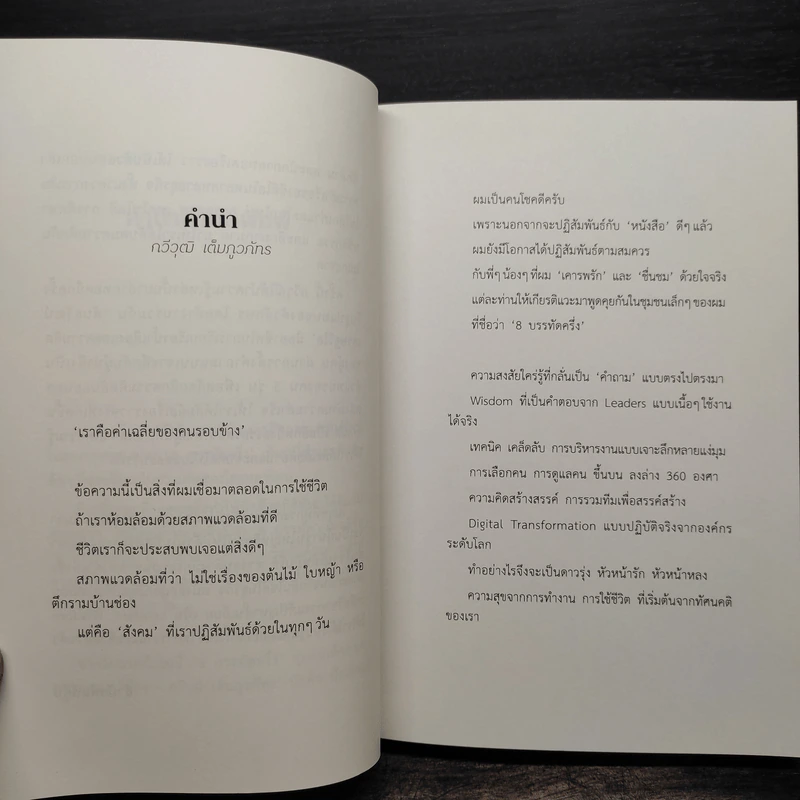 คำนำ
กวีวุฒิ เต็มภูวภัทร
‘เราคือค่าเฉลี่ยของคนรอบข้าง’
ข้อความนี้เป็นสิ่งที่ผมเชื่อมาตลอดในการใช้ชีวิต
ถ้าเราห้อมล้อมด้วยสภาพแวดล้อมที่ดี
ชีวิตเราก็จะประสบพบเจอแต่สิ่งดีๆ
สภาพแวดล้อมที่ว่า ไม่ใช่เรื่องของต้นไม้ ใบหญ้า หรือ
ตึกรามบ้านช่อง
แต่คือ ‘สังคม’ ที่เราปฏิสัมพันธ์ด้วยในทุกๆ วัน
ผมเป็นคนโชคดีครับ
เพราะนอกจากจะปฏิสัมพันธ์กับ ‘หนังสือ’ ดีๆ แล้ว
ผมยังมีโอกาสได้ปฏิสัมพันธ์ตามสมควร
กับพี่ๆ น้องๆ ที่ผม ‘เคารพรัก’ และ ‘ชื่นชม’ ด้วยใจจริง
แต่ละท่านให้เกียรติแวะมาพูดคุยกันในชุมชนเล็กๆ ของผม
ที่ชื่อว่า ‘8 บรรทัดครึ่ง’
ความสงสัยใคร่รู้ที่กลั่นเป็น ‘คำถาม’ แบบตรงไปตรงมา
Wisdom ที่เป็นคำตอบจาก Leaders แบบเนื้อๆ ใช้งาน
ได้จริง
เทคนิค เคล็ดลับ การบริหารงานแบบเจาะลึกหลายแง่มุม
การเลือกคน การดูแลคน ขึ้นบน ลงล่าง 360 องศา
ความคิดสร้างสรรค์ การรวมทีมเพื่อสรรค์สร้าง
Digital Transformation แบบปฏิบัติจริงจากองค์กร
ระดับโลก
ทำอย่างไรจึงจะเป็นดาวรุ่ง หัวหน้ารัก หัวหน้าหลง
ความสุขจากการทำงาน การใช้ชีวิต ที่เริ่มต้นจากทัศนคติ
ของเรา